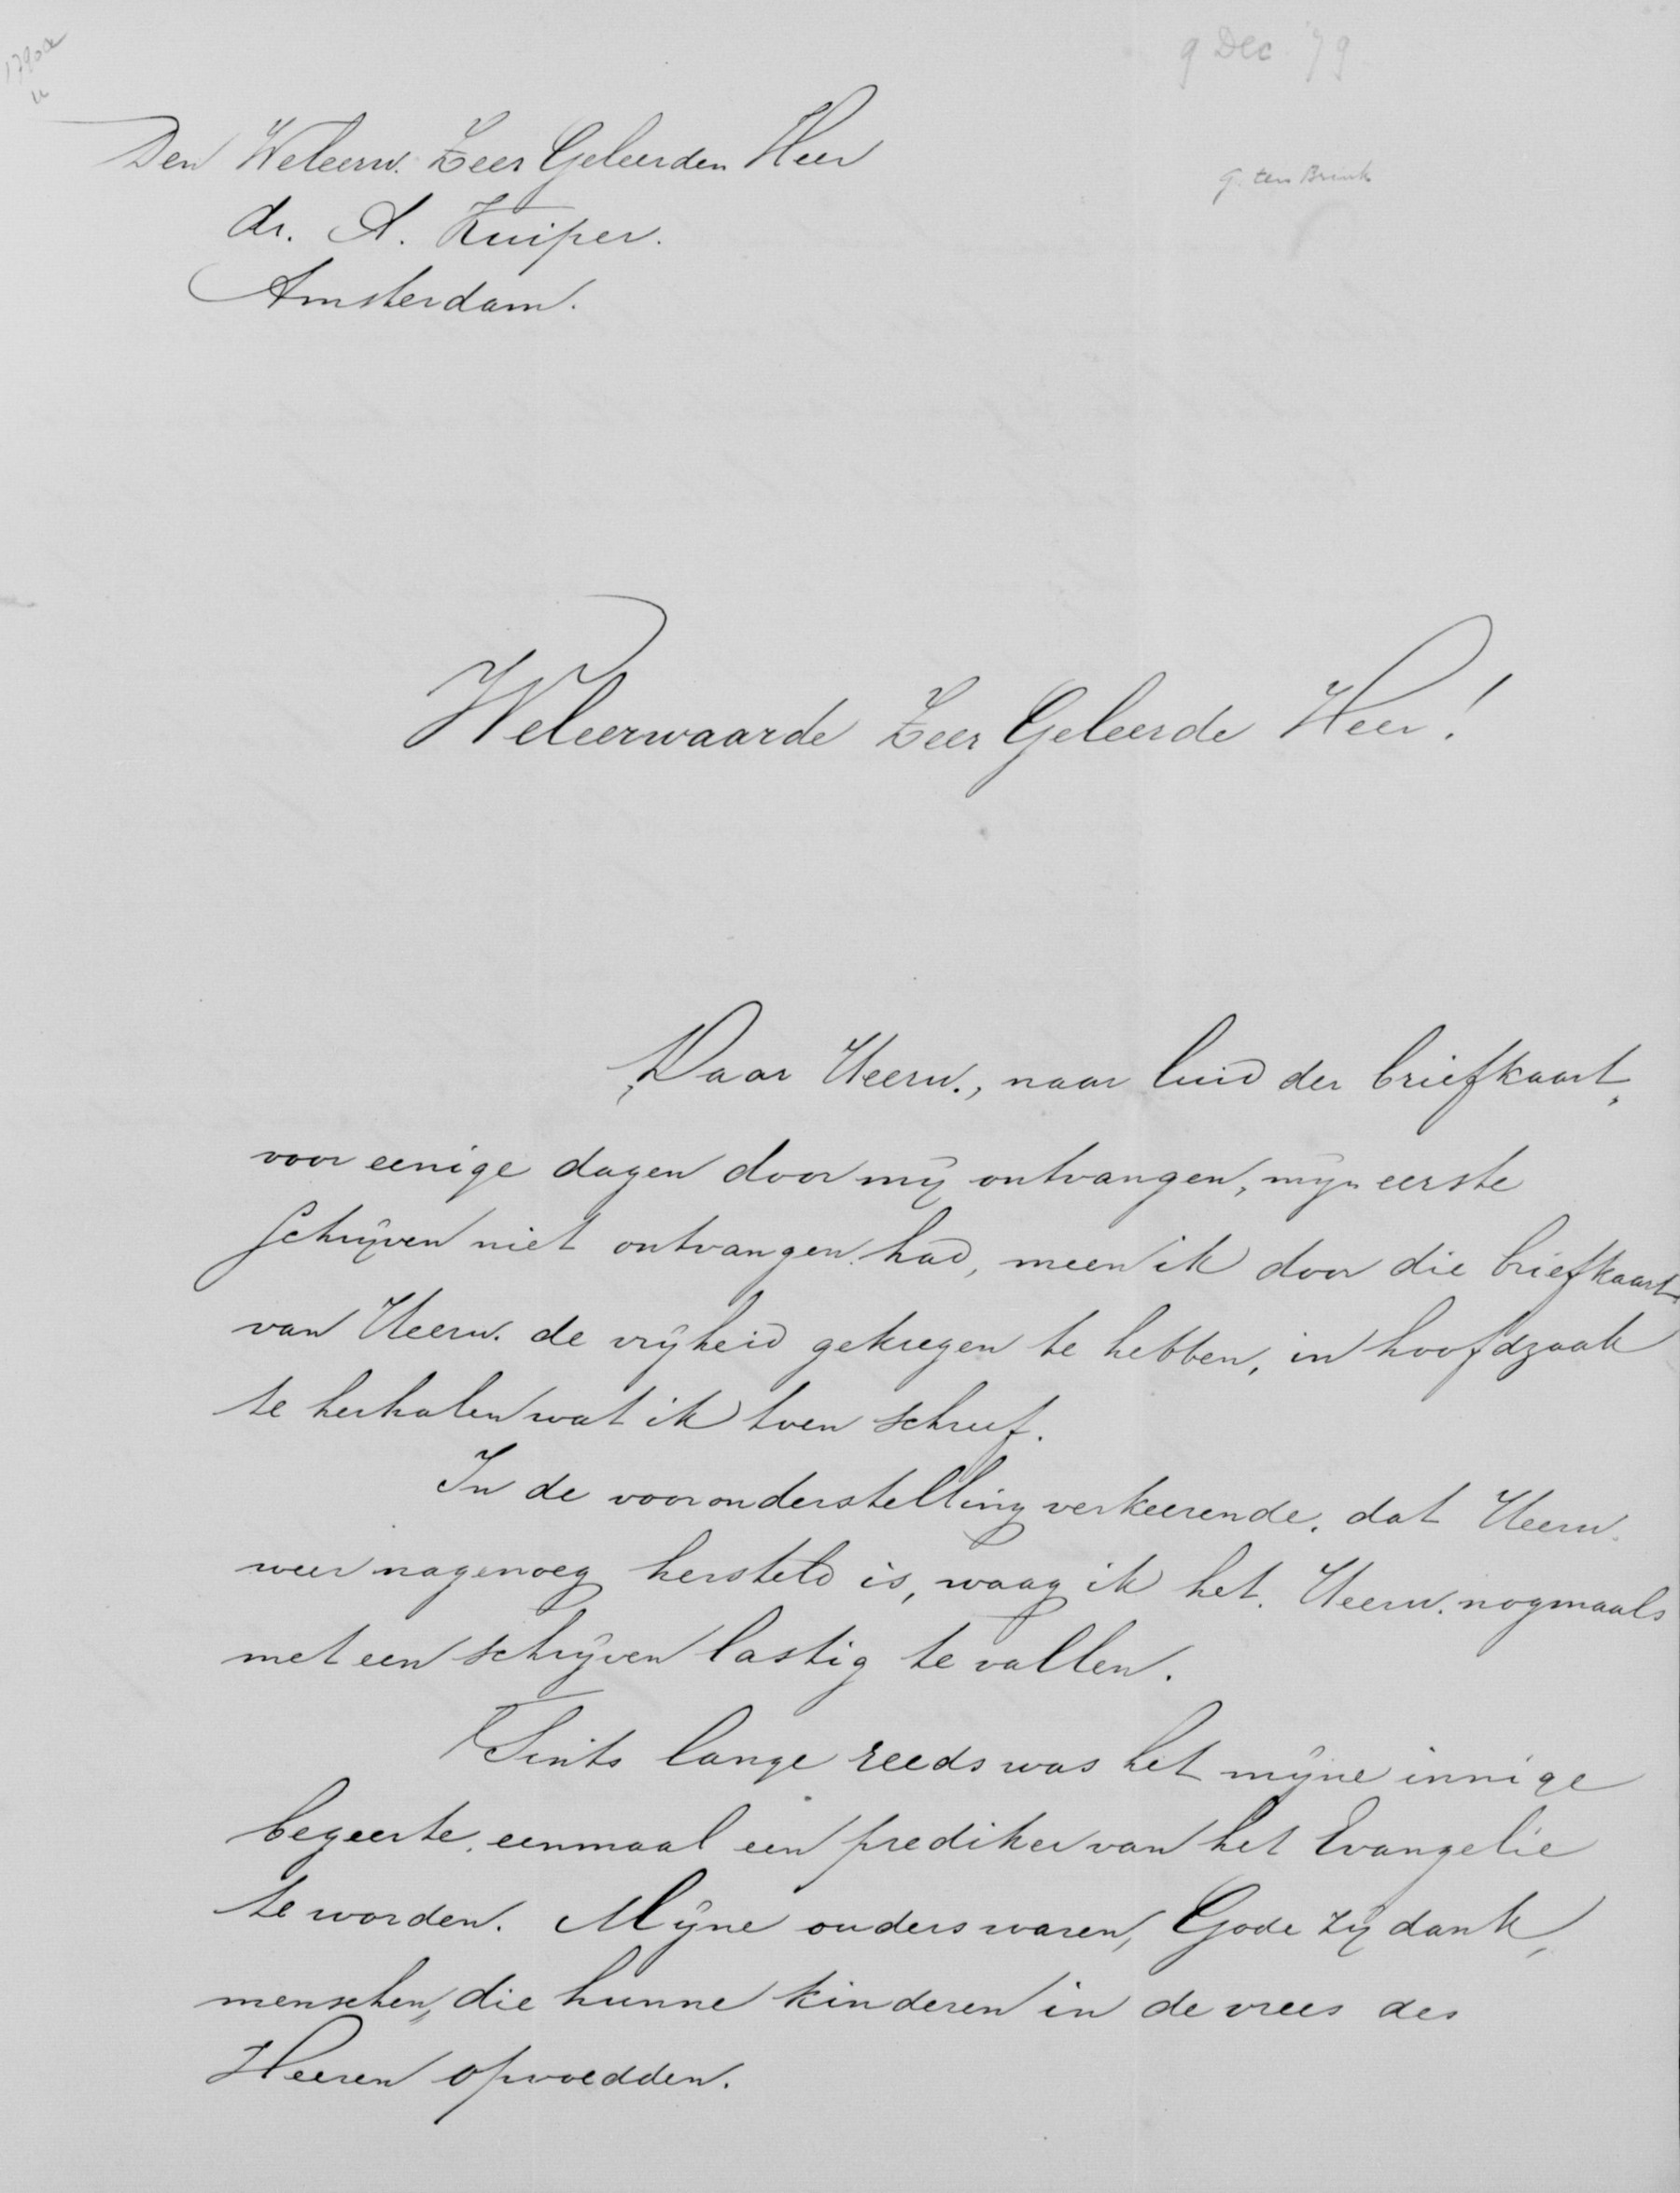 9 Dec '79
1790a
Den Weleerw. Zeer Geleerden Heer
G. ten Brink
dr. A. Kuiper.
Amsterdam.
Weleerwaarde Zeer Geleerde Heer!
Daar UEerw., naar luid der briefkaart,
voor eenige dagen door mij ontvangen, mijn eerste
schrijven niet ontvangen had, meen ik door die briefkaart
van UEerw. de vrijheid gekregen te hebben, in hoofdzaak
te herhalen wat ik toen schreef.
In de vooronderstelling verkeerende, dat UEerw.
weer nagenoeg hersteld is, waag ik het, UEerw. nogmaals
met een schrijven lastig te vallen.
Sints lange reeds was het mijne innige
begeerte, eenmaal een prediker van het Evangelie
te worden. Mijne ouders waren, Gode zij dank,
menschen, die hunne kinderen in de vrees des
Heeren opvoedden.